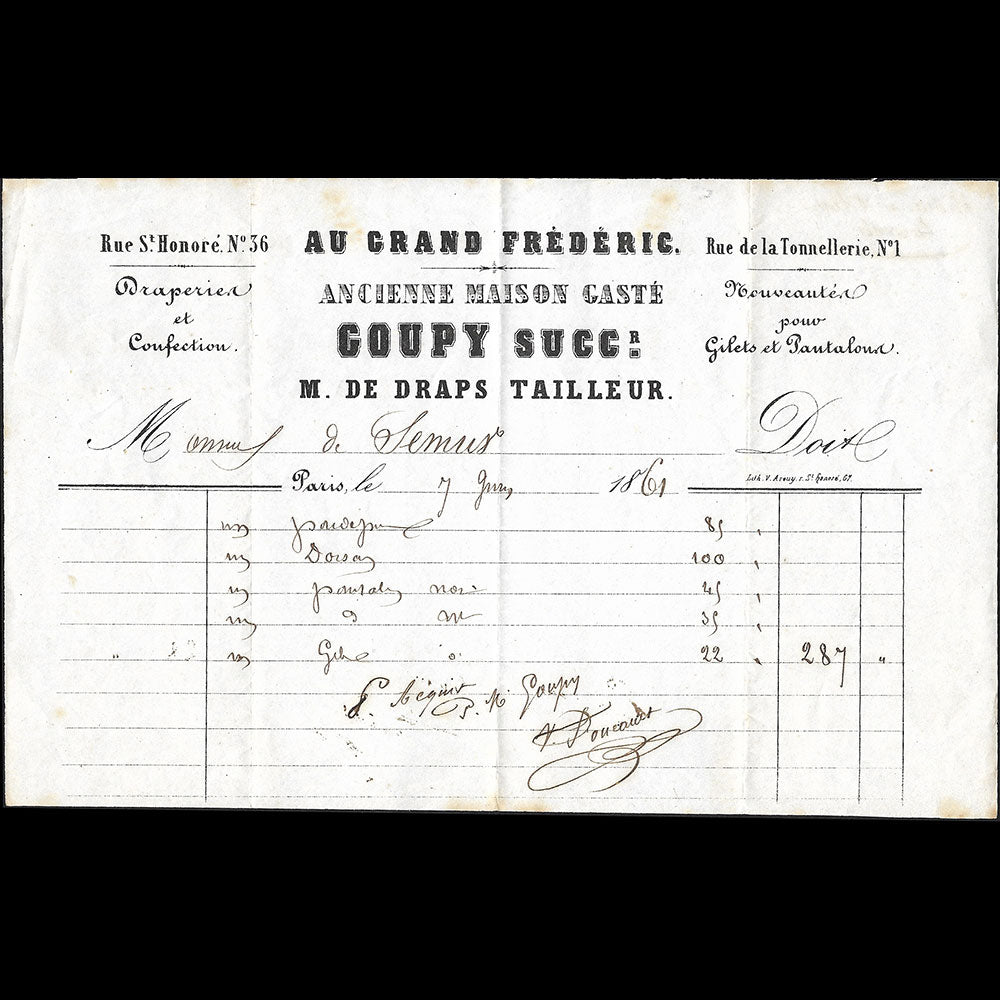 Rue St. Honoré. No. 36
Draperies
et
Confection.
AU GRAND FRÉDÉRIC.
ANCIENNE MAISON GASTÉ
GOUPY SUCCR.
M. DE DRAPS TAILLEUR.
Rue de la Tonnellerie, No 1
Nouveautés
pour
Gilets et Pantalons.
de Semur
Doit
Paris, le 7 1861
Lith. V. Arouy, r. St. Honoré, 67.
un 85 "
un Dorsay 100 "
un pantalon 45 "
un d 35 "
un Gilet 22 " 287 "
P. Acquit P. M Goupy